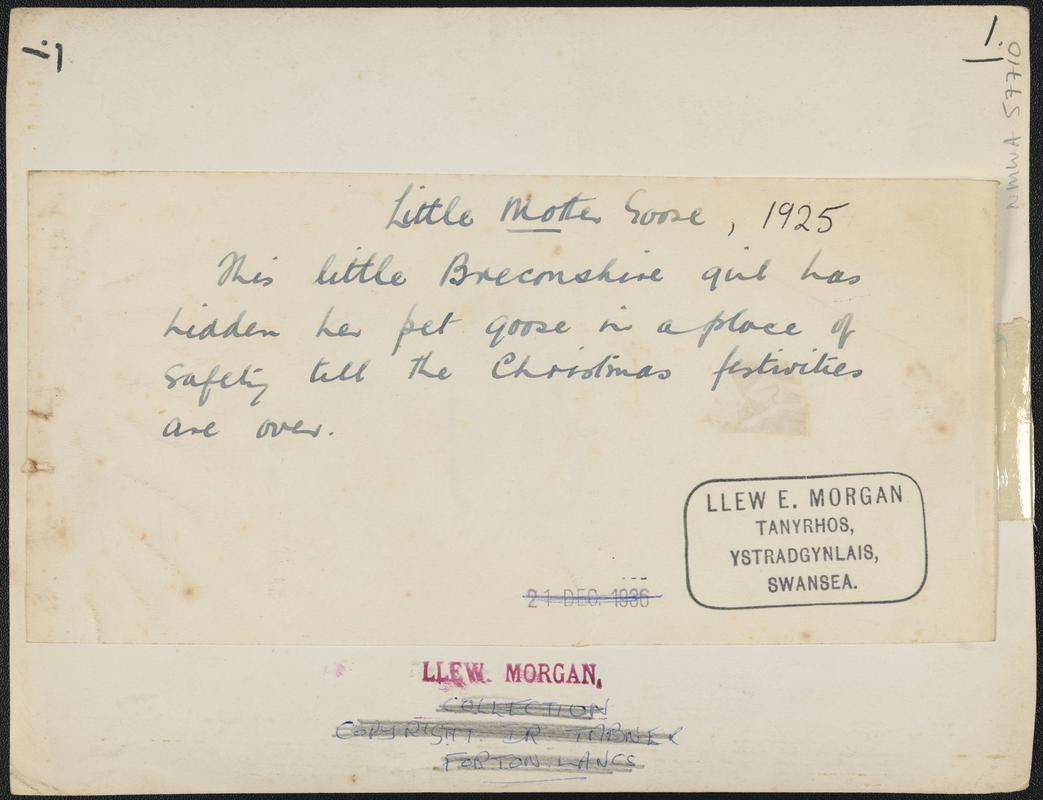 1.
1.
NMWA 57710
Little Mother Goose, 1925
This little Breconshire girl has
hidden her pet goose in a place of
safety till the Christmas festivities
are over.
LLEW E. MORGAN
TANYRHOS,
YSTRADGYNLAIS,
SWANSEA.
21 DEC. 1936
LLEW. MORGAN,
COLLECTION
COPYRIGHT. DR TABNER
FORTON LANCS